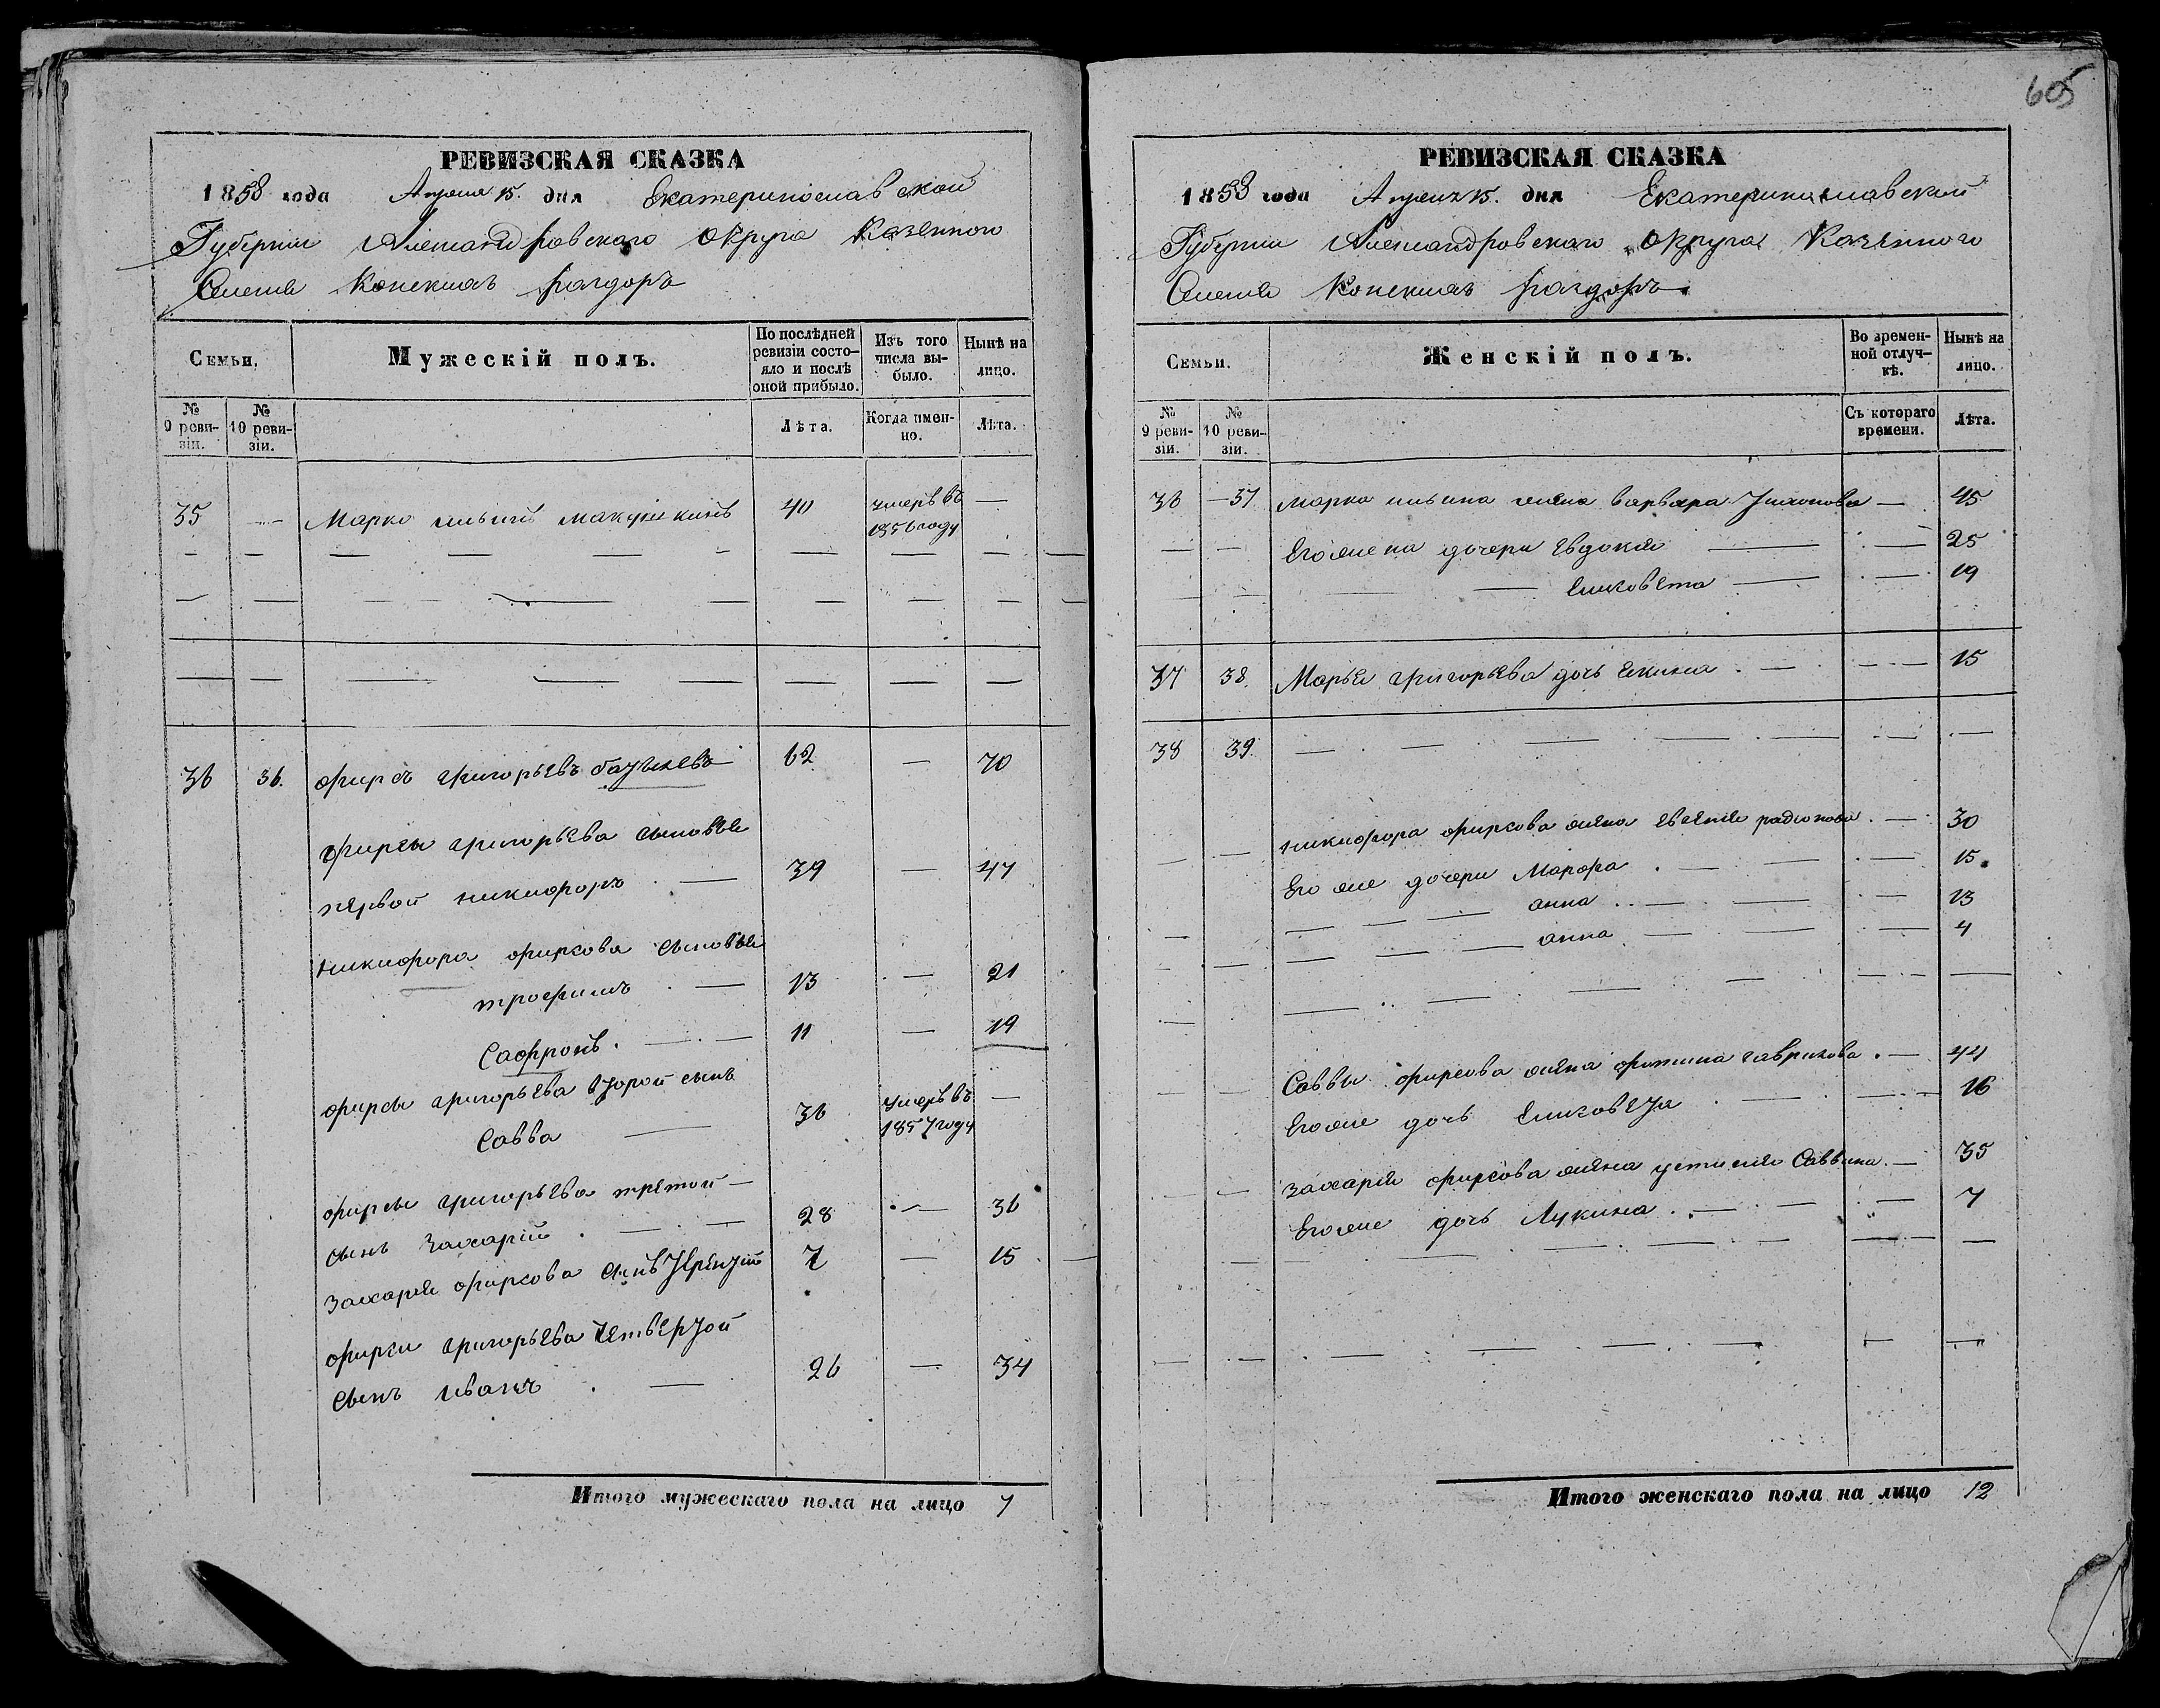 605
РЕВИЗСКАЯ СКАЗКА
1858 года Апреля 15. дня Екатеринославской
Губернии Александровскаго Округа Казенного
Селения Конскихъ раздоръ
Семьи.
Мужескій полъ.
По послѣдней ревизіи состояло и послѣ оной прибыло.
Изъ того числа выбыло.
Нынѣ на лицо.
№ 9 ревизіи.
№ 10 ревизіи.
Лѣта.
Когда именно.
Лѣта.
35 — Марко ильинъ 40 умеръ въ 1856 году —
36 36. фирсъ григорьевъ 62 — 70
фирсы григорьева сыновья
первой никифоръ 39 — 47
никифора фирсова сыновья
трофимъ 13 — 21
Сафронъ. 11 — 19
фирсы григорьева второй сынъ
Савва 36 умеръ въ 1857 году —
фирсы григорьева третой —
сынъ захарій 28 — 36
захарія фирсова сынъ 7 — 15
фирсы григорьева четвертой
сынъ иванъ 26 — 34
Итого мужескаго пола на лицо 7
РЕВИЗСКАЯ СКАЗКА
1858 года Апреля 15. дня Екатеринославской
Губернии Александровскаго округа Казенного
Селения Конскихъ раздоръ
Семьи.
Женскій полъ.
Во временной отлучкѣ.
Нынѣ на лицо.
№ 9 ревизіи.
№ 10 ревизіи.
Съ котораго времени.
Лѣта.
36 — 37 марка ильина жена варвара — 45
Его жена дочери Евдокия — 25
Елизовета — 19
37 38. Марья григорьева дочь — 15
38 39. —
никифора фирсова жена радионова — 30
Его же дочери Марфа — 15
анна — 13
анна — 4
Саввы фирсова жена фотина гаврилова — 44
Его же дочь Елизовета — 16
захария фирсова жена устиния Саввина — 35
Его же дочь Лукина — 7
Итого женскаго пола на лицо 12